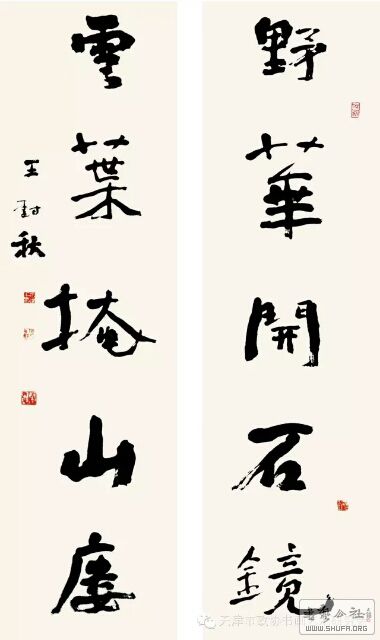 野華開石鏡
雲葉掩山廔
王尌秋
天津市政协书画
書藝公社
WWW.SHUFA.ORG